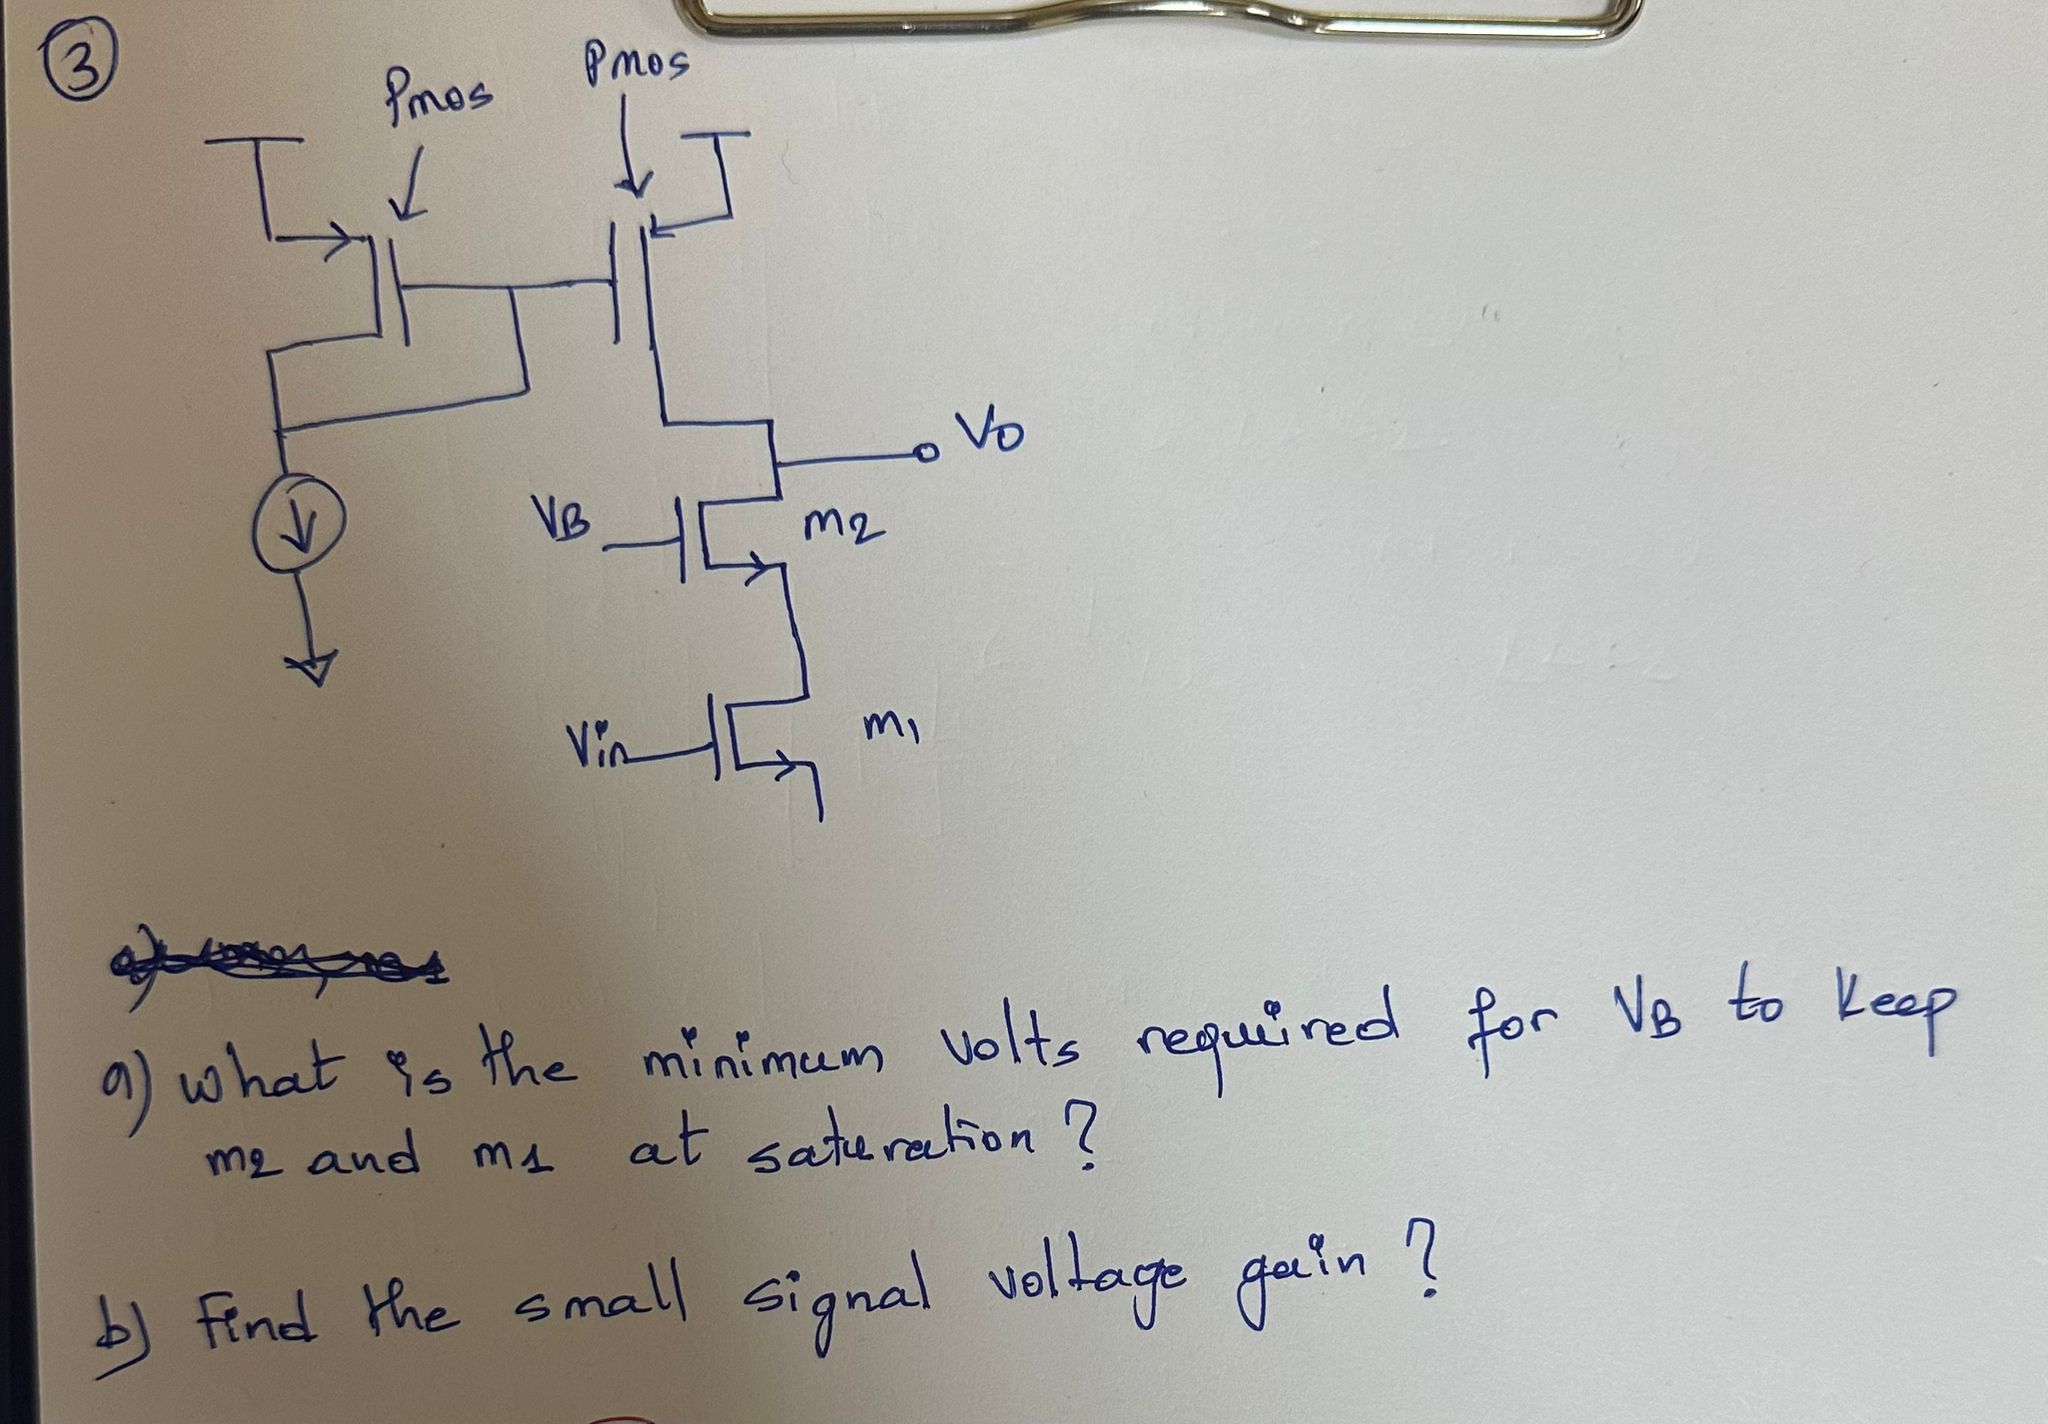 3
Pmos
Pmos
Vo
VB
m2
Vin
m1
a) what is the minimum volts required for VB to keep
m2 and m1 at saturation?
b) Find the small signal voltage gain?